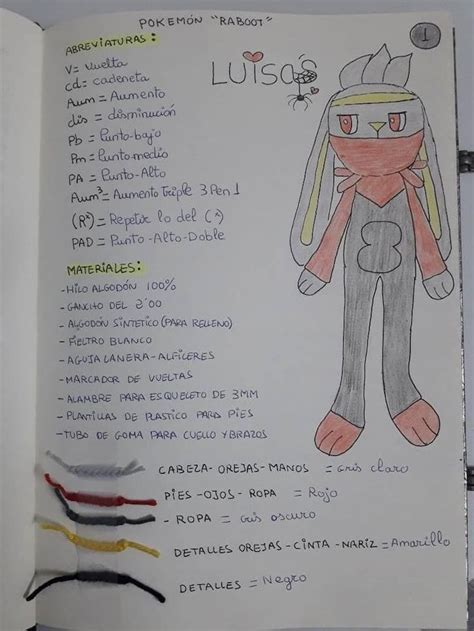 POKEMÓN "RABOOT"
1
ABREVIATURAS:
LUISA'S
V= Vuelta
cd= cadeneta
Aum = Aumento
dis = disminución
Pb = Punto-bajo
Pm = Punto medio
PA = Punto-Alto
Aum³ = Aumento Triple 3 Pen 1
(R*) = Repetir lo del (*)
PAD = Punto-Alto-Doble
MATERIALES:
-HILO ALGODÓN 100%
-GANCHO DEL 2'00
-ALGODÓN SINTETICO (PARA RELLENO)
-FIELTRO BLANCO
-AGUJA LANERA-ALFILERES
-MARCADOR DE VUELTAS
-ALAMBRE PARA ESQUELETO DE 3MM
-PLANTILLAS DE PLASTICO PARA PIES
-TUBO DE GOMA PARA CUELLO Y BRAZOS
CABEZA-OREJAS-MANOS = Gris claro
PIES-OJOS-ROPA = Rojo
-ROPA = Gris oscuro
DETALLES OREJAS-CINTA-NARIZ = Amarillo
DETALLES = Negro